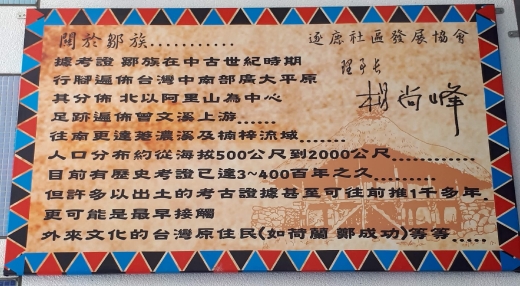 關於鄒族............
逐鹿社區發展協會
理事長
楊尚峰
據考證 鄒族在中古世紀時期
行腳遍佈台灣中南部廣大平原
其分佈 北以阿里山為中心
足跡遍佈曾文溪上游......
往南更達荖濃溪及楠梓流域.......
人口分布約從海拔500公尺到2000公尺............
目前有歷史考證已達3~400百年之久.........
但許多以出土的考古證據甚至可往前推1千多年.
更可能是最早接觸
外來文化的台灣原住民(如荷蘭 鄭成功)等等.....